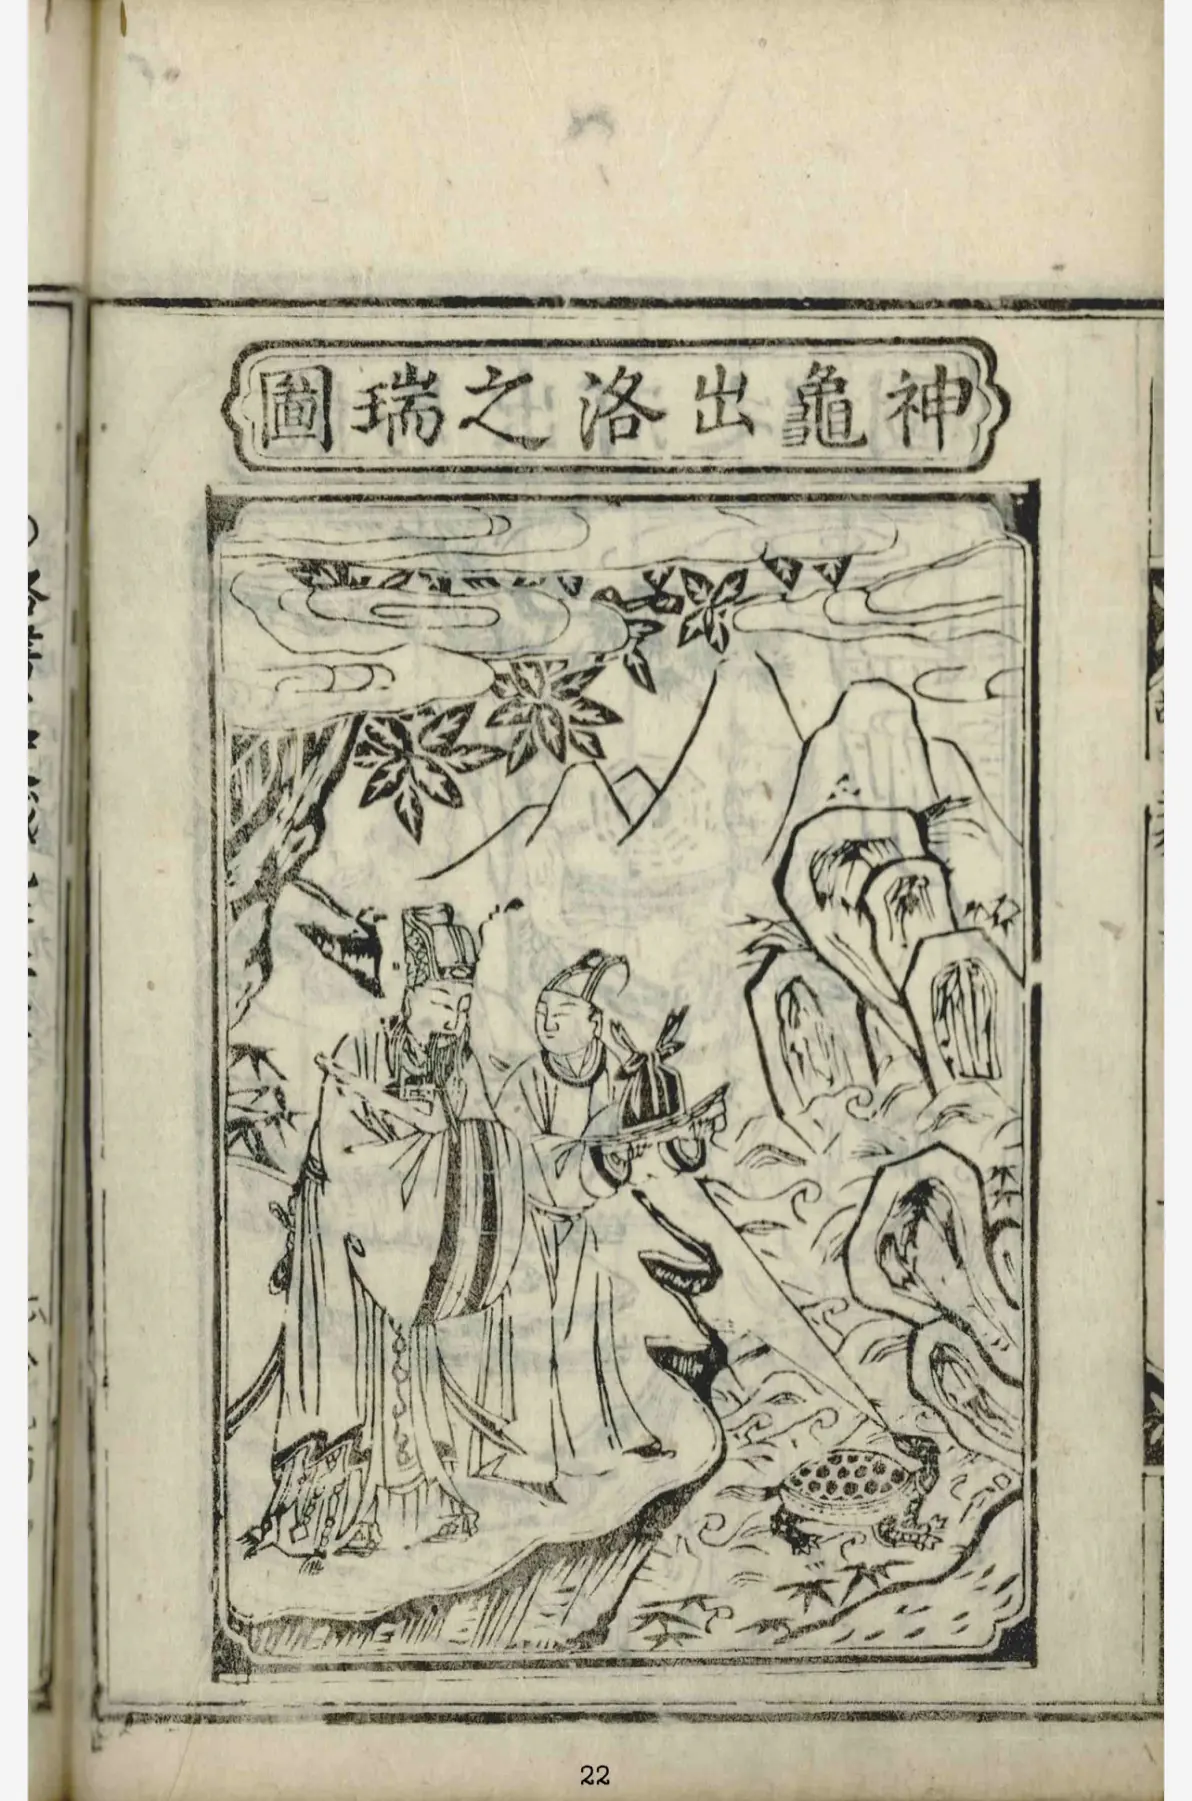 神龜出洛之瑞圖
22